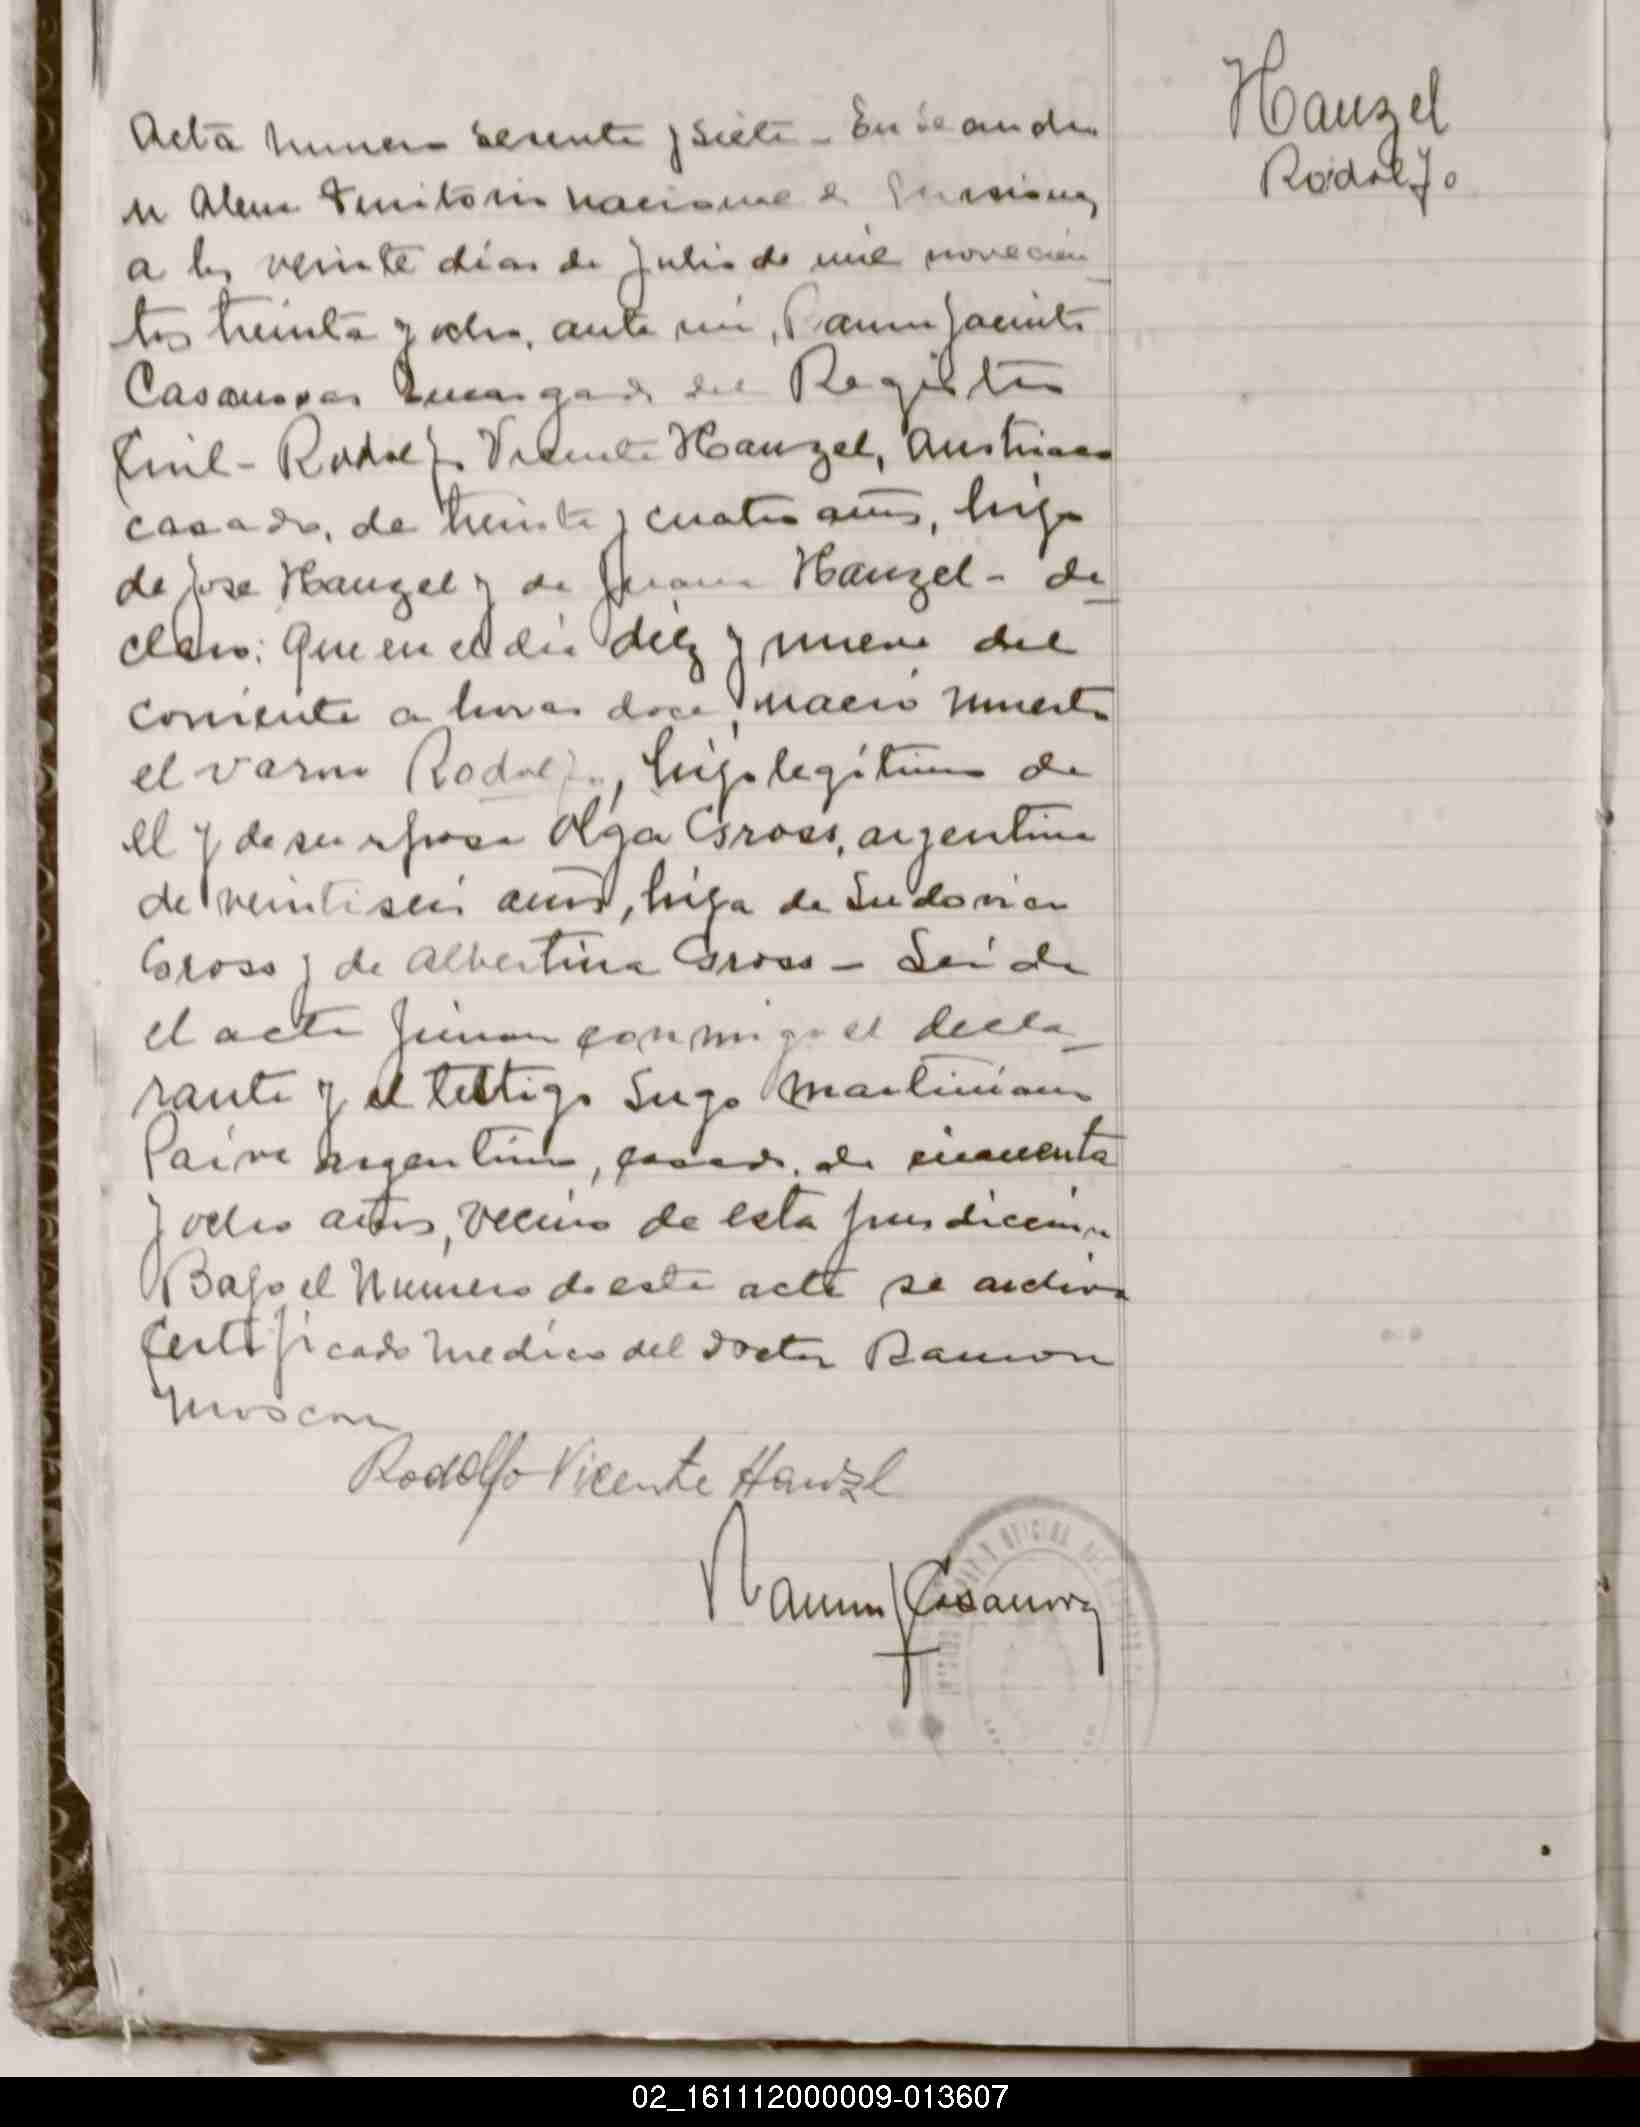 Hanzel
Rodolfo
Acta numero sesenta y siete - En Leandro
N Alem Territorio nacional de Misiones
a los veinte dias de Julio de mil novecien
tos treinta y ocho, ante mi, Ramon Jacinto
Casanovas Encargado del Registro
Civil - Rodolfo Vicente Hanzel, Austriaco
casado, de treinta y cuatro años, hijo
de Jose Hanzel y de Juana Hanzel - de
claro: Que en el dia diez y nueve del
corriente a horas doce, nacio muerto
el varon Rodolfo, hijo legitimo de
el y de su esposa Olga Gross, argentina
de veintiseis años, hija de Ludovico
Gross y de Albertina Gross - Leida
el acta firman conmigo el decla
rante y el testigo Martiniano
argentino, casado, de cincuenta
y ocho años, vecino de esta jurisdiccion
Bajo el Numero de este acta se archiva
Certificado medico del doctor Ramon
Rodolfo Vicente Hanzl
Ramon J Casanova
OFICIAL DEL
02_161112000009-013607